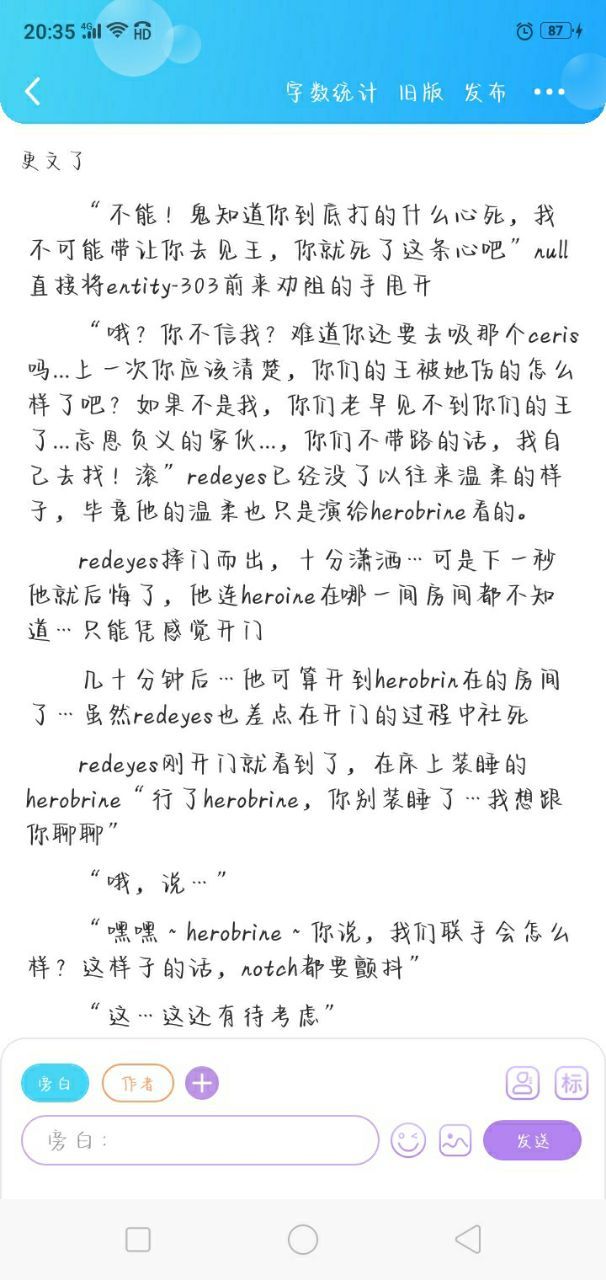 20:35 4G HD 87
字数统计 旧版 发布
更文了
“不能！鬼知道你到底打的什么心死，我
不可能带让你去见王，你就死了这条心吧”null
直接将entity-303前来劝阻的手甩开
“哦？你不信我？难道你还要去吸那个ceris
吗…上一次你应该清楚，你们的王被她伤的怎么
样了吧？如果不是我，你们老早见不到你们的王
了…忘恩负义的家伙…，你们不带路的话，我自
己去找！滚”redeyes已经没了以往来温柔的样
子，毕竟他的温柔也只是演给herobrine看的。
redeyes摔门而出，十分潇洒…可是下一秒
他就后悔了，他连heroine在哪一间房间都不知
道…只能凭感觉开门
几十分钟后…他可算开到herobrin在的房间
了…虽然redeyes也差点在开门的过程中社死
redeyes刚开门就看到了，在床上装睡的
herobrine“行了herobrine，你别装睡了…我想跟
你聊聊”
“哦，说…”
“嘿嘿~herobrine~你说，我们联手会怎么
样？这样子的话，notch都要颤抖”
“这…这还有待考虑”
旁白 作者 标
旁白： 发送